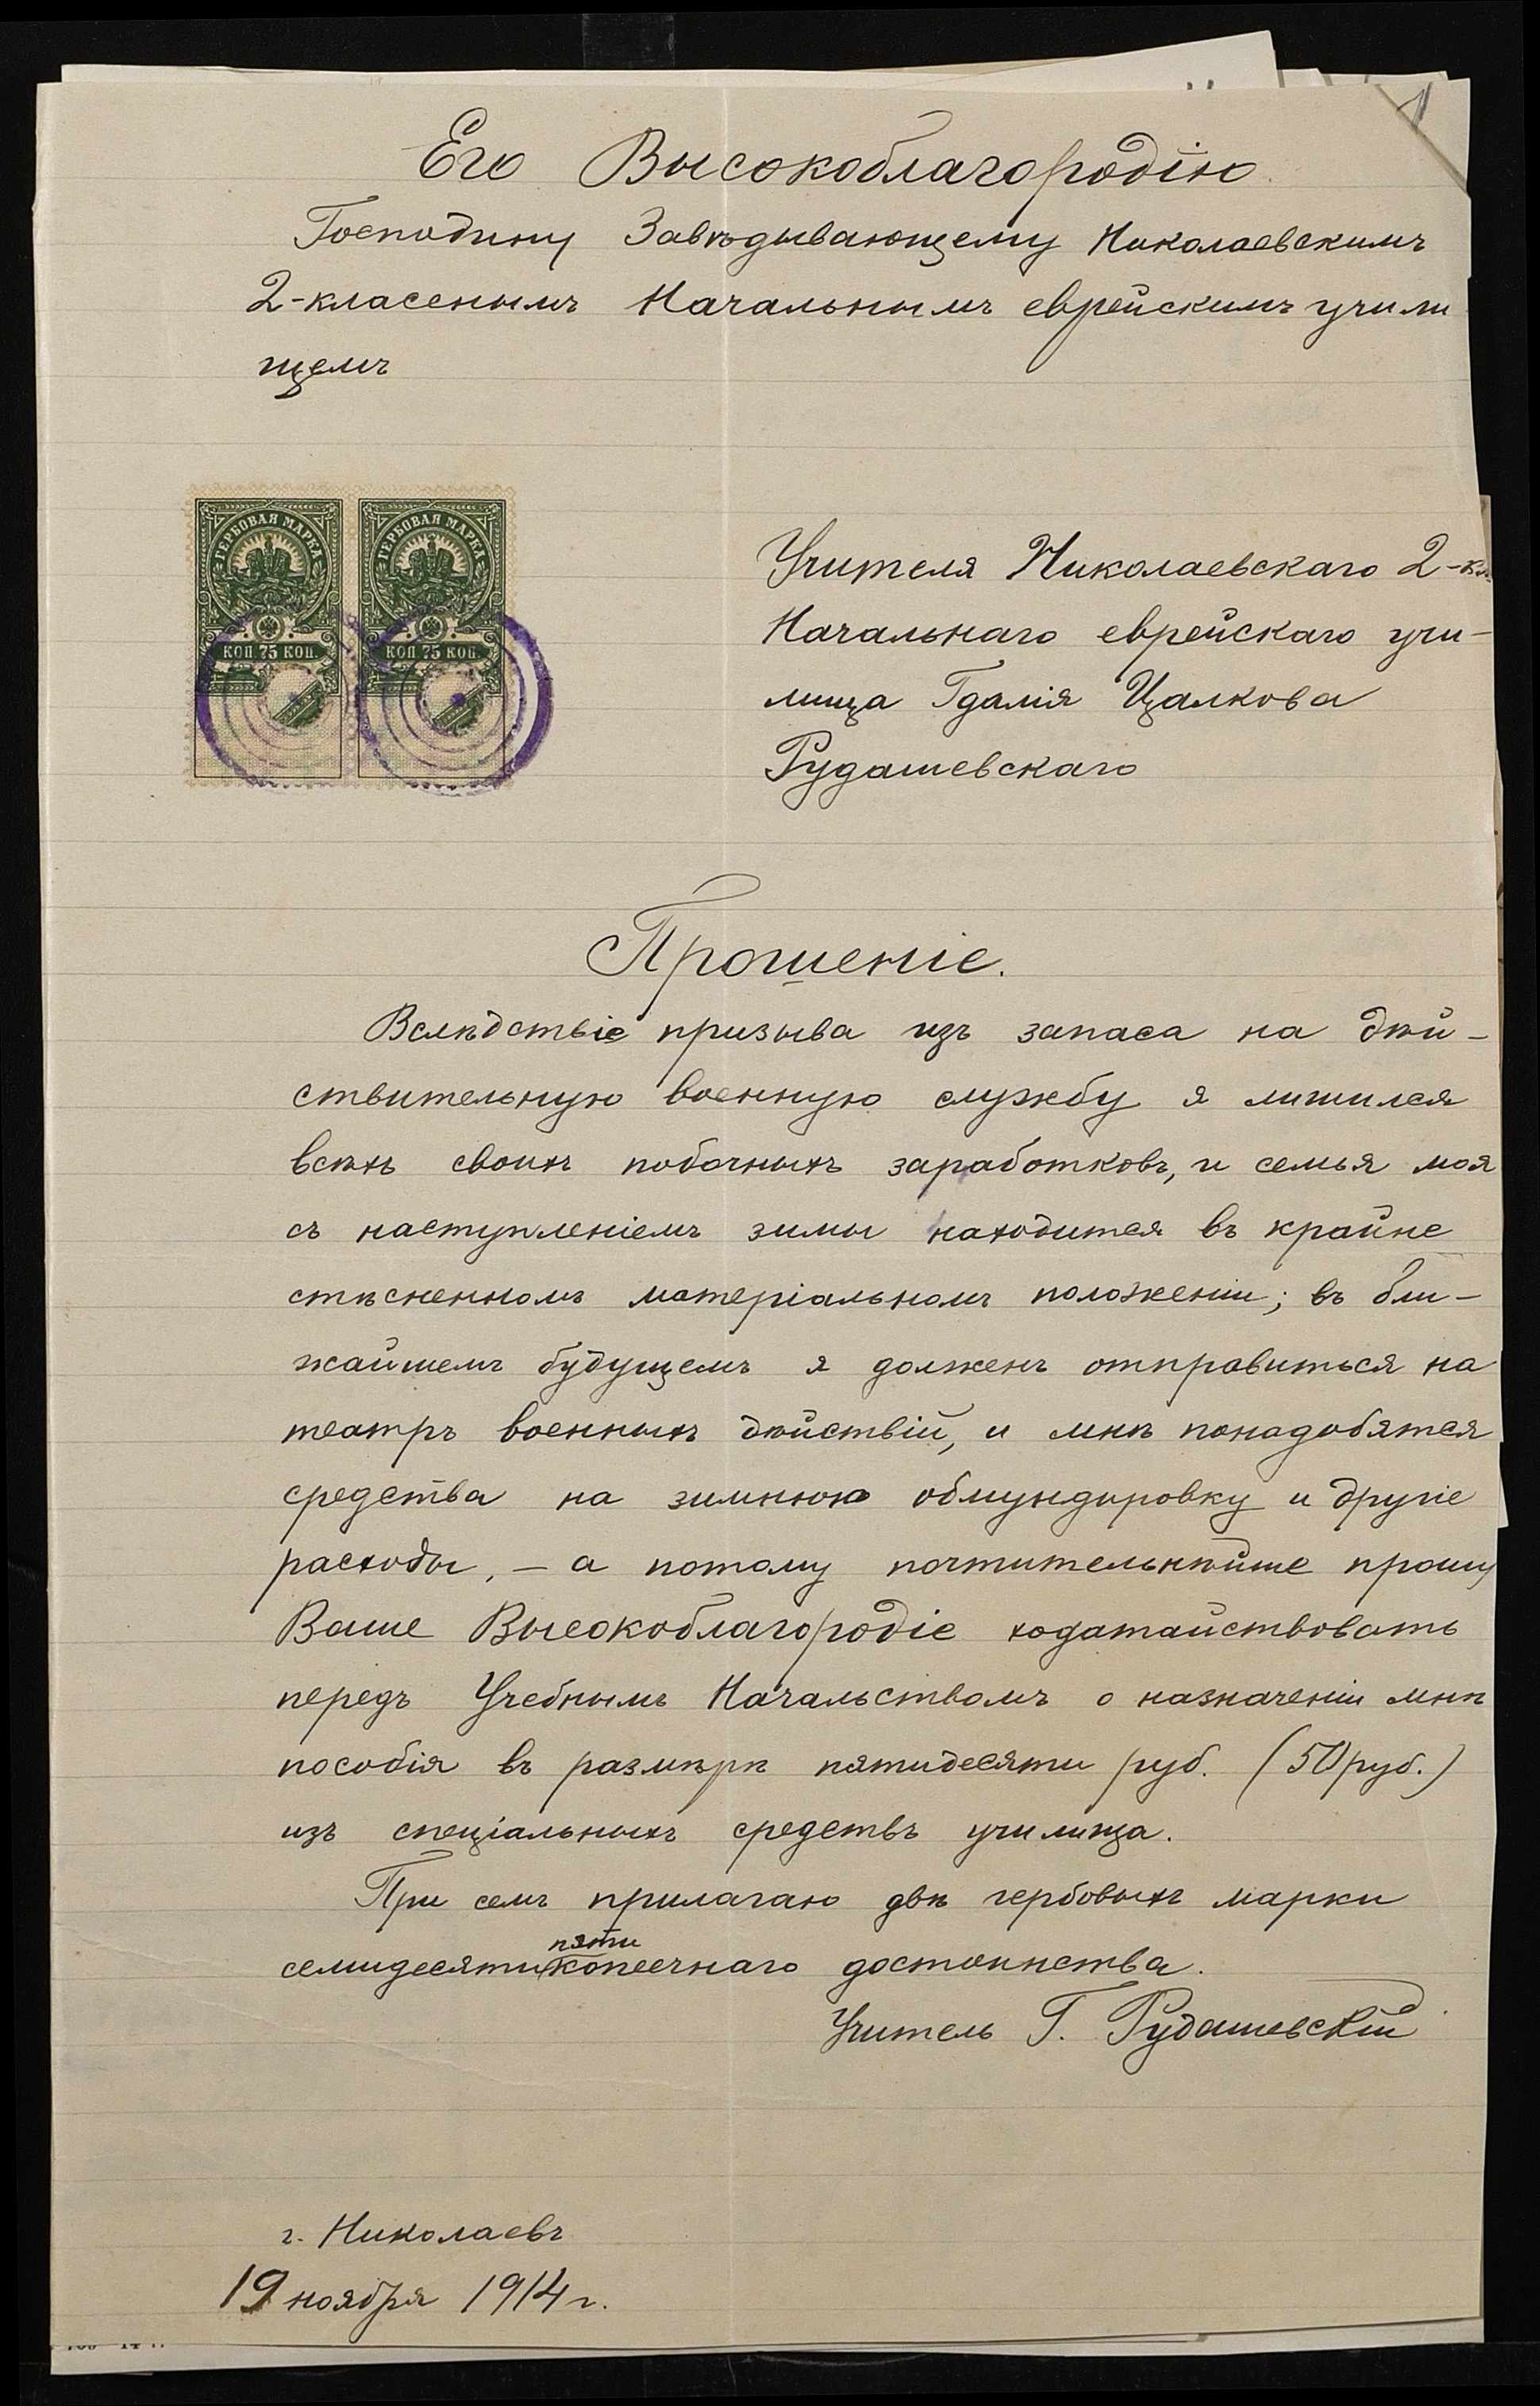 1
Его Высокоблагородію
Господину Завѣдывающему Николаевскимъ
2-класснымъ Начальнымъ еврейскимъ учили
щемъ
ГЕРБОВАЯ МАРКА ГЕРБОВАЯ МАРКА
КОП 75 КОП. КОП 75 КОП.
Учителя Николаевскаго 2-кл.
Начальнаго еврейскаго учи-
лища Гдалія Цалкова
Рудашевскаго
Прошеніе.
Вслѣдствіе призыва изъ запаса на дѣй-
ствительную военную службу я лишился
всѣхъ своихъ побочныхъ заработковъ, и семья моя
съ наступленіемъ зимы находится въ крайне
стѣсненномъ матеріальномъ положеніи; въ бли-
жайшемъ будущемъ я долженъ отправиться на
театръ военныхъ дѣйствій, и мнѣ понадобятся
средства на зимнюю обмундировку и другіе
расходы, - а потому почтительнѣйше прошу
Ваше Высокоблагородіе ходатайствовать
передъ Учебнымъ Начальствомъ о назначеніи мнѣ
пособія въ размѣрѣ пятидесяти руб. (50 руб.)
изъ спеціальныхъ средствъ училища.
При семъ прилагаю двѣ гербовыхъ марки
пяти
семидесятикопеечнаго достоинства.
Учитель Г. Рудашевскій
г. Николаевъ
19 ноября 1914 г.